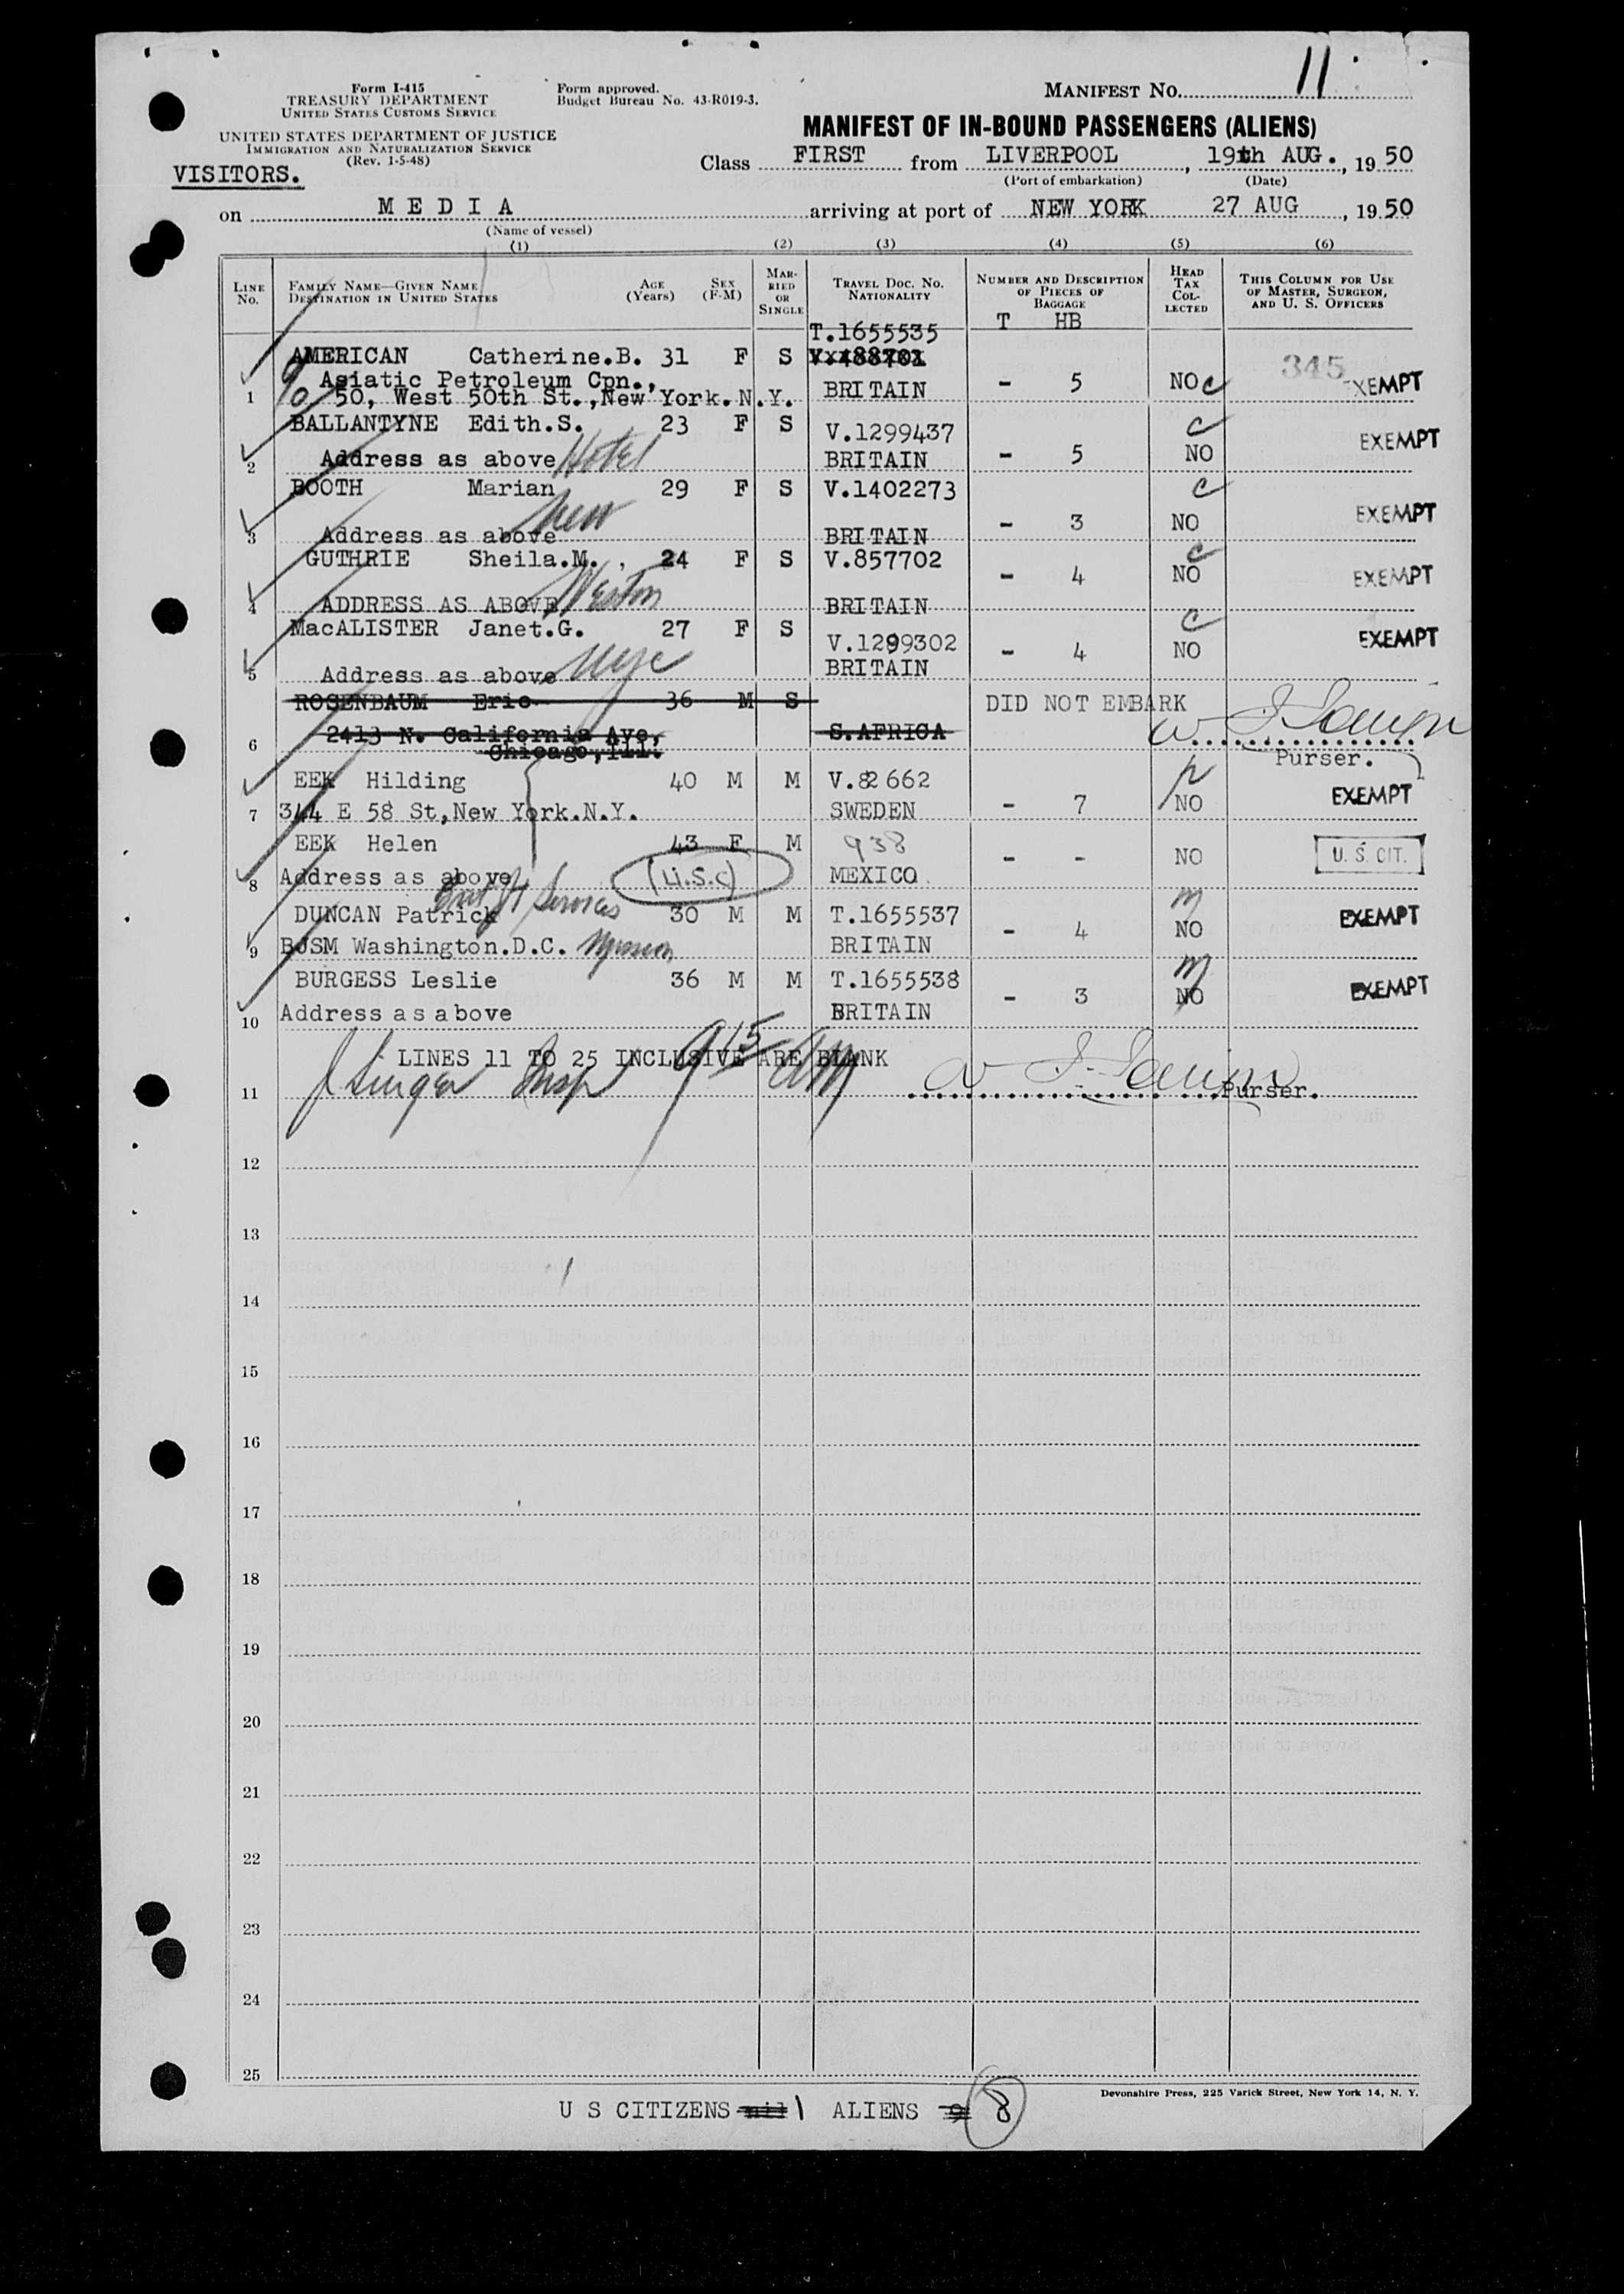 Form I-415
TREASURY DEPARTMENT
UNITED STATES CUSTOMS SERVICE
UNITED STATES DEPARTMENT OF JUSTICE
IMMIGRATION AND NATURALIZATION SERVICE
(Rev. 1-5-48)
Form approved.
Budget Bureau No. 43-R019-3.
MANIFEST NO. 11
MANIFEST OF IN-BOUND PASSENGERS (ALIENS)
VISITORS.
Class FIRST from LIVERPOOL, 19th AUG., 1950
(Port of embarkation) (Date)
on MEDIA arriving at port of NEW YORK 27 AUG, 1950
(Name of vessel)
(1) (2) (3) (4) (5) (6)
LINE NO. FAMILY NAME—GIVEN NAME DESTINATION IN UNITED STATES AGE (Years) SEX (F-M) MARRIED OR SINGLE TRAVEL DOC. NO. NATIONALITY NUMBER AND DESCRIPTION OF PIECES OF BAGGAGE HEAD TAX COLLECTED THIS COLUMN FOR USE OF MASTER, SURGEON, AND U. S. OFFICERS
T HB
T.1655535
AMERICAN Catherine.B. 31 F S V.488701 345
c/o Asiatic Petroleum Cpn., BRITAIN - 5 NO c EXEMPT
1 50, West 50th St.,New York.N.Y.
BALLANTYNE Edith.S. 23 F S V.1299437 c EXEMPT
2 Address as above Hotel BRITAIN - 5 NO
BOOTH Marian 29 F S V.1402273 c
3 Address as above New BRITAIN - 3 NO EXEMPT
GUTHRIE Sheila.M. 24 F S V.857702 c
4 ADDRESS AS ABOVE Weston BRITAIN - 4 NO EXEMPT
MacALISTER Janet.G. 27 F S V.1299302 c EXEMPT
5 Address as above Nyc BRITAIN - 4 NO
ROSENBAUM Eric 36 M S DID NOT EMBARK
6 2413 N. California Ave, S.AFRICA
Chicago,Ill. Purser.
EEK Hilding 40 M M V.82662
7 344 E 58 St,New York.N.Y. SWEDEN - 7 NO EXEMPT
EEK Helen 43 F M 938
8 Address as above (U.S.C) MEXICO - - NO U. S. CIT.
Brit Jt Services
DUNCAN Patrick 30 M M T.1655537 m EXEMPT
9 BJSM Washington.D.C. Mission BRITAIN - 4 NO
BURGESS Leslie 36 M M T.1655538 m
10 Address as above BRITAIN - 3 NO EXEMPT
LINES 11 TO 25 INCLUSIVE ARE BLANK
J Singer Insp 915 AM
11 Purser.
12
13
14
15
16
17
18
19
20
21
22
23
24
25
Devonshire Press, 225 Varick Street, New York 14, N. Y.
U S CITIZENS nil 1 ALIENS 9 8